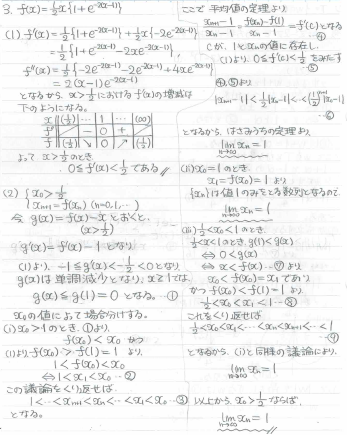 3. f(x)=½x{1+e^{-2(x-1)}}
(1) f'(x)=½{1+e^{-2(x-1)}}+½x{-2e^{-2(x-1)}}
=½{1+e^{-2(x-1)}-2xe^{-2(x-1)}},
f''(x)=½{-2e^{-2(x-1)}-2e^{-2(x-1)}+4xe^{-2(x-1)}}
=2(x-1)e^{-2(x-1)}
となるから、x>½における f'(x)の増減は
下のようになる。
x | (½) | … | 1 | … | (∞)
f'' | | - | 0 | + |
f' | (½) | ↘ | 0 | ↗ | (½)
よって x>½のとき、
0≦f'(x)<½である
(2) { x₀>½
x_{n+1}=f(x_n) (n=0,1,…)
今 g(x)=f(x)-x とおくと、
(x>½)
g'(x)=f'(x)-1 となり、
(1)より、-1≦g'(x)<-½<0 となり
g(x)は単調減少となり、x≧1では、
g(x)≦g(1)=0 となる。…①
x₀の値によって場合分けする。
(i) x₀>1のとき、①より、
f(x₀)<x₀ かつ
(1)より f(x₀)>f(1)=1 より、
1<f(x₀)<x₀
⇔ 1<x₁<x₀ …②
この議論をくり返せば、
1<…<x_{n+1}<x_n<…<x₁<x₀ …③
となる。
ここで 平均値の定理より、
(x_{n+1}-1)/(x_n-1)=(f(x_n)-f(1))/(x_n-1)=f'(c)となる …④
cが、1とx_nの間に存在し、
(1)より、0≦f'(c)<½をみたす …⑤
④,⑤より
|x_{n+1}-1|<½|x_n-1|<…<(½)^{n+1}|x₀-1| …⑥
となるから、はさみうちの定理より、
lim_{n→∞} x_n=1
(ii) x₀=1のとき、
x₁=f(x₀)=1 より
{x_n}は値1のみをとる数列となるので
lim_{n→∞} x_n=1
(iii) ½<x₀<1のとき
½<x<1のとき、g(1)<g(x)
⇔ 0<g(x)
⇔ x<f(x) …⑦より
x₀<f(x₀)=x₁であり
かつ f(x₀)<f(1)=1 より、
½<x₀<x₁<1 …⑧
これをくり返せば
½<x₀<x₁<…<x_n<x_{n+1}<…<1 …⑨
となるから、(i)と同様の議論により、
lim_{n→∞} x_n=1
以上から、x₀>½ならば、
lim_{n→∞} x_n=1